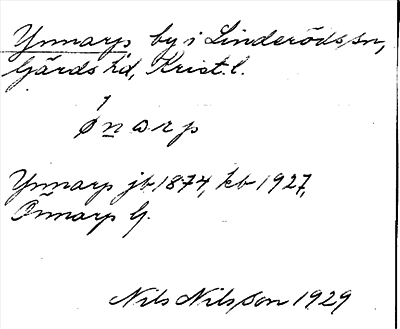 Ynnarp by i Linderöds sn,
Gärds hd, Krist. l.
ǿnarp
Ynnarp jb 1874, kb 1927,
Önnarp G.
Nils Nilsson 1929